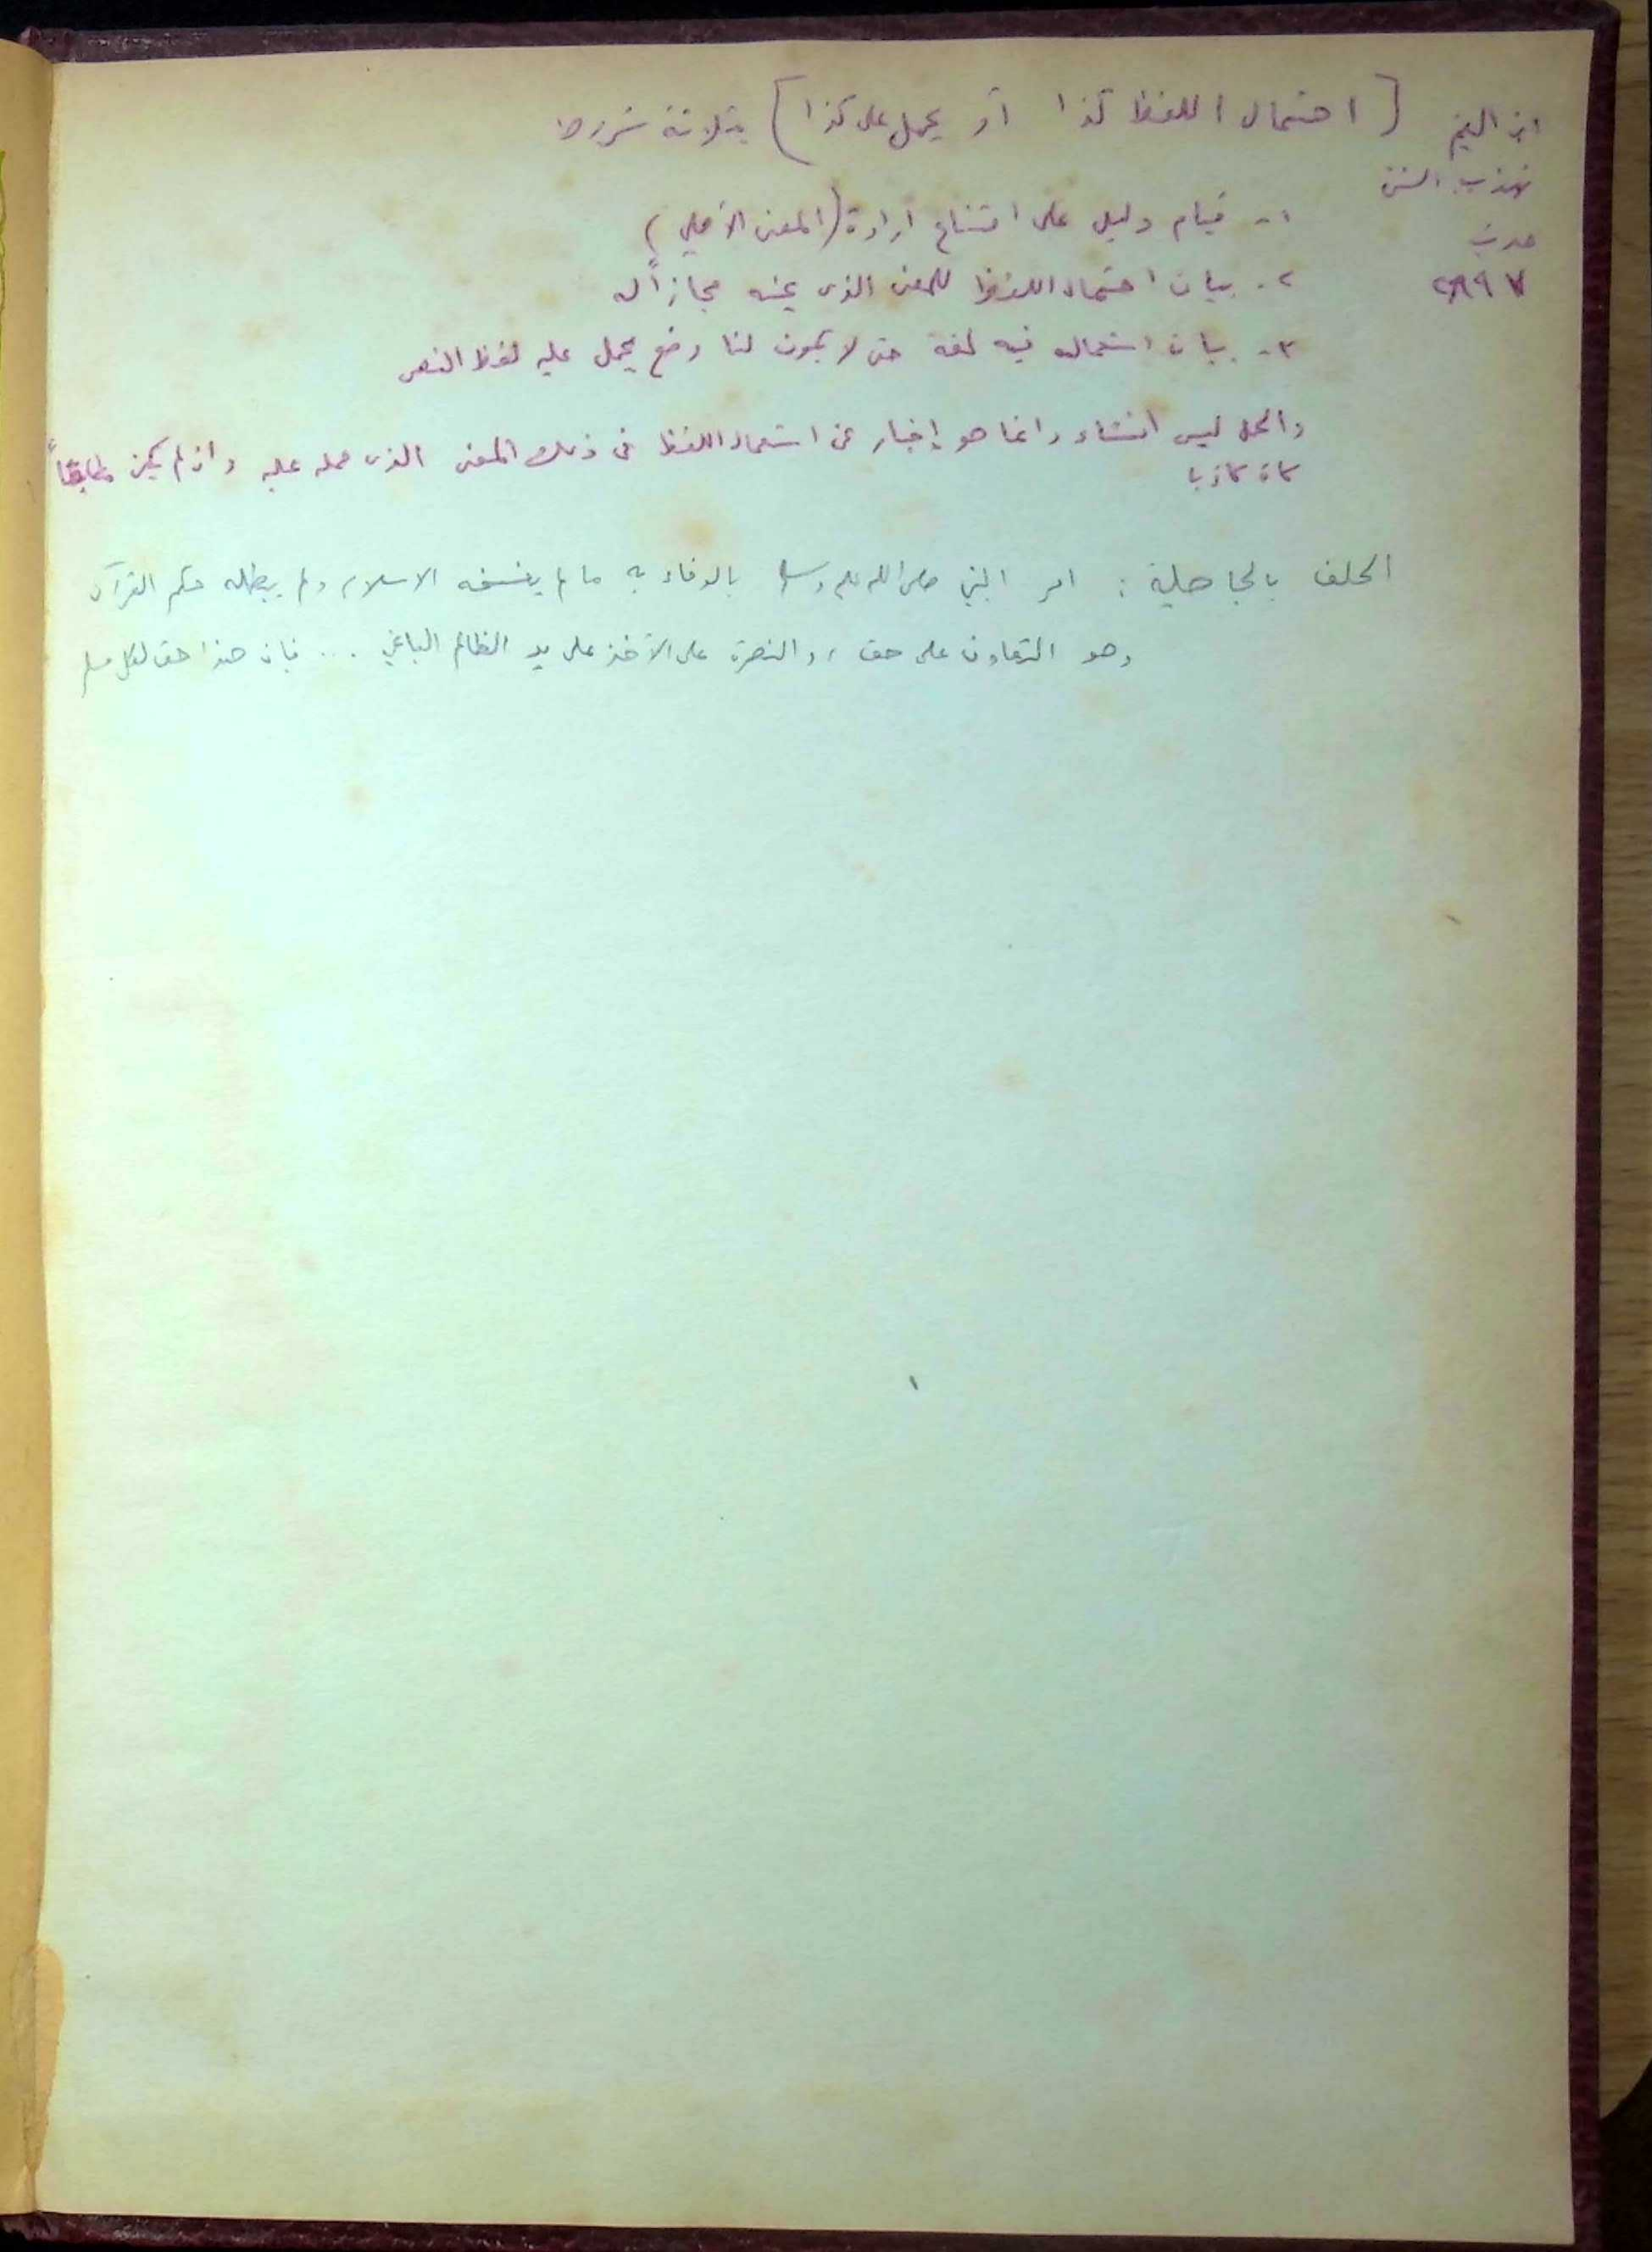 ابن القيم [ احتمال اللفظ كذا أو يحمل على كذا ] بثلاثة شروط
تهذيب السنن
حديث
٢٨٩٧
١- قيام دليل على امتناع ارادة (المعنى الأصلي)
٢- بيان احتمال اللفظ للمعنى الذى عينه مجازاً له
٣- بيان استعماله فيه لغة حتى لا يكون لنا وضع يحمل عليه لفظ النص
والحمل ليس انشاء وانما هو إخبار عن استعمال اللفظ فى ذلك المعنى الذى حمله عليه وان لم يكن مطابقاً
كان كاذبا
الحلف بالجاهلية : امر النبي صلى الله عليه وسلم بالوفاء به ما لم ينسخه الاسلام ولم يبطله حكم القرآن
وهو التعاون على حق ، والنصرة على الأخذ على يد الظالم الباغي ... فإن هذا حق لكل مسلم